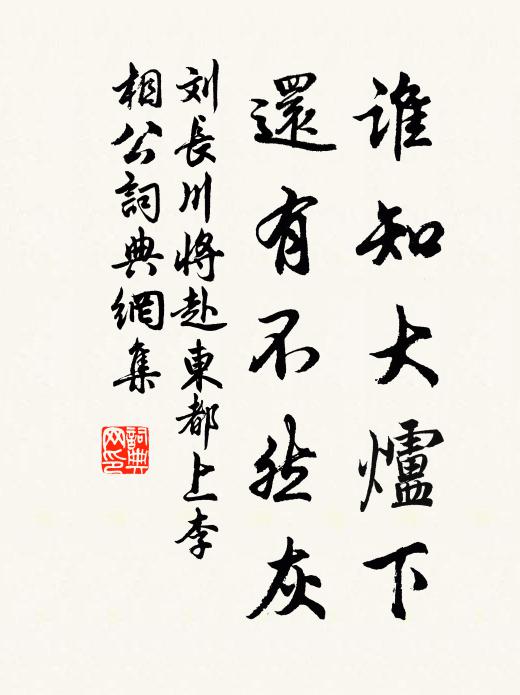 谁知大爐下
還有不然灰
刘長川將赴東都上李
相公詞典網集
詞典网印